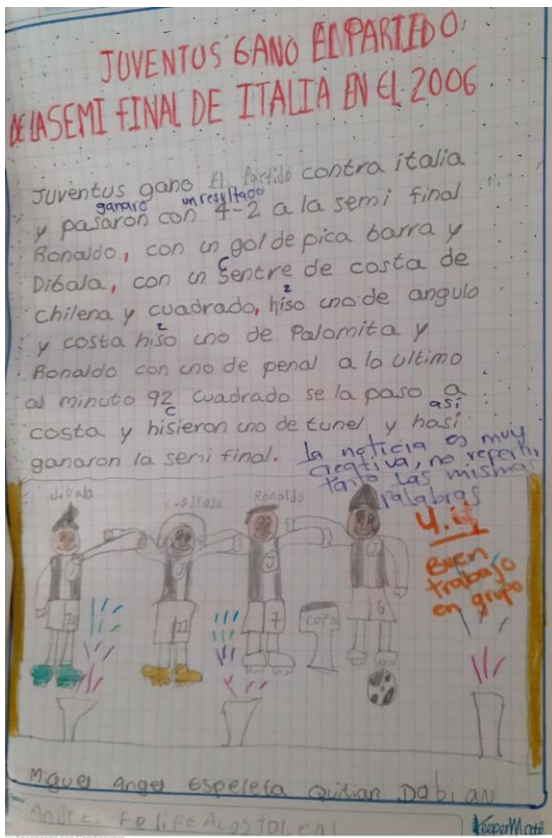 JUVENTOS GANO EL PARTIDO
DE LA SEMI FINAL DE ITALIA EN EL 2006
Juventus gano El Partido contra italia
ganaro un resultado
y pasaron con 4-2 a la semi final
Ronaldo, con un gol de pica barra y
Dibala, con un Sentre de costa de
c
chilena y cuadrado, hiso uno de angulo
z
y costa hiso uno de Palomita y
z
Ronaldo con uno de penal a lo ultimo
al minuto 92 cuadrado se la paso a
costa y hisieron uno de tunel y hasi
c así
ganaron la semi final.
La noticia es muy
creativa, no repetir
tanto las mismas
palabras
Dibala cuadrado Ronaldo
4.
Buen
trabajo
en grupo
copa
10 7 6
Miguel Angel Espeleta Quitian Dabian
Andres Felipe Acosta
KeeperMate